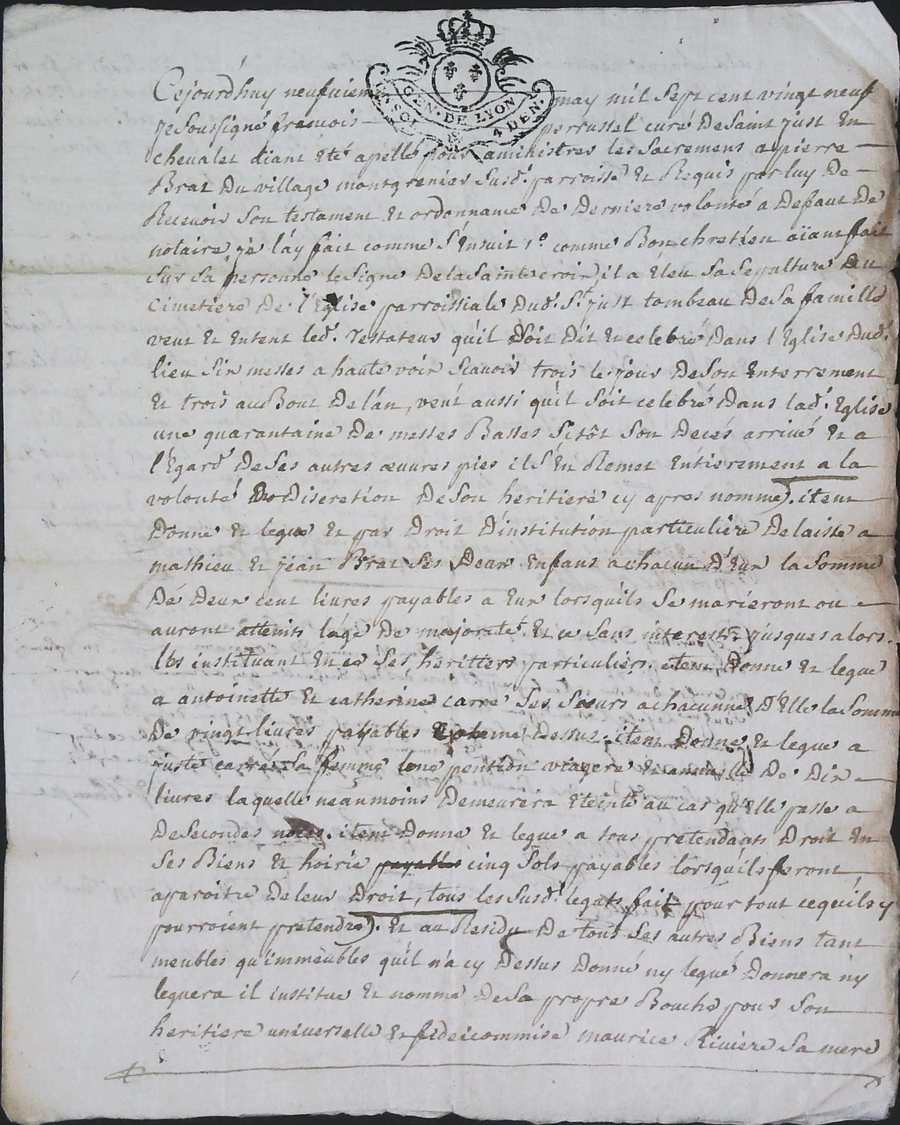 GEN. DE LYON
1 SOL 4 DEN.
Cejourdhuy neufuieme may mil Sept cent vingt neuf
je Sousigné francois perrustel curé De Saint just En
chevalet étant Eté apellé pour aministrer les Sacremens a pierre
Brat Du village montgrenier Susd. parroisse Et Requis par luy De
Recevoir Son testament Et ordonnance De Derniere volonté a Defaut De
notaire je láy fait comme S'Ensuit 1.º comme Bon chretien aïant fait
Sur Sa personne le Signe De la Sainte croix il a Eleu Sa Sepulture Du
Cimetiere De l'Eglise parroissiale Dud. S.t just tombeau De Sa famille
veut Et Entent led. Testateur qu'il Soit Dit Et celebré Dans l'Eglise Dud.
lieu Six messes a haute voix Scavoir trois le jour De Son Enterrement
Et trois au Bout De lán, veut aussi qu'il Soit celebré Dans lad. Eglise
une quarantaine De messes Basses Sitôt Son Decés arrivé Et a
l'Egard De Ses autres œuvres pies il S'En Remet Entierement a la
volonté Discretion De Son heritiere cy apres nommé). item
Donne Et legue Et par Droit D'institution particuliere Delaisse a
mathieu Et jean Brat Ses Deux Enfans a chacun D'Eux la Somme
De Deux cent livres payables a Eux lorsquils Se marieront ou
auront atteints lage De majorité Et ce Sans interests jusques alors
les instituant En ce Ses heritiers particuliers. item Donne Et legue
a antoinette Et catherine carre Ses Sœurs a chacunne D'Elle la Somme
De vingt livres payables Dessus. item Donne Et legue a
juste carre Sa femme une pention viagere Et annuelle De Dix
livres laquelle neanmoins Demeurera Eteinte au cas qu'Elle passe a
De Secondes noces. item Donne Et legue a tous pretendants Droit En
Ses Biens Et hoirie payables cinq Sols payables lorsquils feront
aparoitre De leur Droit, tous les Susd. legats fait pour tout cequ'ils y
pourroient pretendre). Et au Residu De tous Ses autres Biens tant
meubles qu'immeubles quil n'a cy Dessus Donné ny legué Donnera ny
leguera il institue Et nomme De Sa propre Bouche pour Son
heritiere universelle Et fideicommise maurice Riviere Sa mere